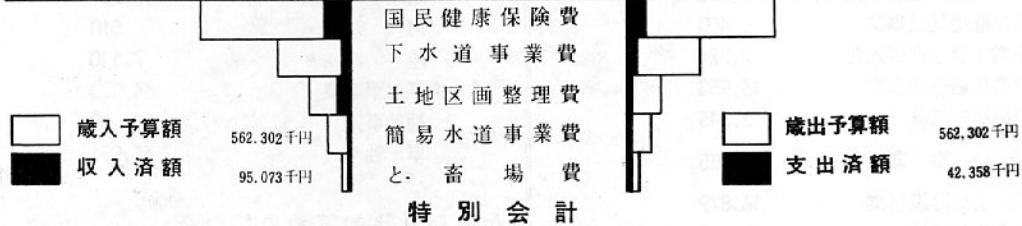 国民健康保険費
下水道事業費
土地区画整理費
簡易水道事業費
と畜場費
特別会計
歳入予算額 562.302千円
収入済額 95.073千円
歳出予算額 562.302千円
支出済額 42.358千円